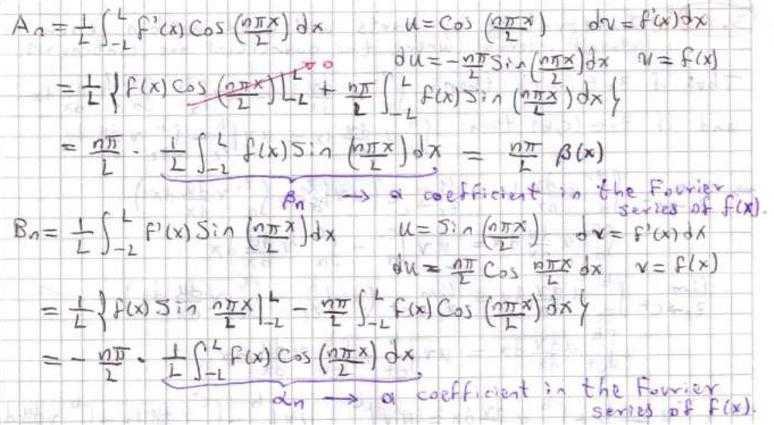 Aₙ = 1/L ∫_{-L}^{L} f'(x) Cos (nπx/L) dx   u = Cos (nπx/L)   dv = f'(x)dx
du = -nπ/L Sin (nπx/L) dx   v = f(x)
= 1/L { f(x) Cos (nπx/L) ]_{-L}^{L} → 0 + nπ/L ∫_{-L}^{L} f(x) Sin (nπx/L) dx }
= nπ/L · 1/L ∫_{-L}^{L} f(x) Sin (nπx/L) dx = nπ/L β(x)
βₙ → a coefficient in the Fourier
series of f(x).
Bₙ = 1/L ∫_{-L}^{L} f'(x) Sin (nπx/L) dx   u = Sin (nπx/L)   dv = f'(x) dx
du = nπ/L Cos nπx/L dx   v = f(x)
= 1/L { f(x) Sin nπx/L |_{-L}^{L} - nπ/L ∫_{-L}^{L} f(x) Cos (nπx/L) dx }
= - nπ/L · 1/L ∫_{-L}^{L} f(x) Cos (nπx/L) dx
αₙ → a coefficient in the Fourier
series of f(x).